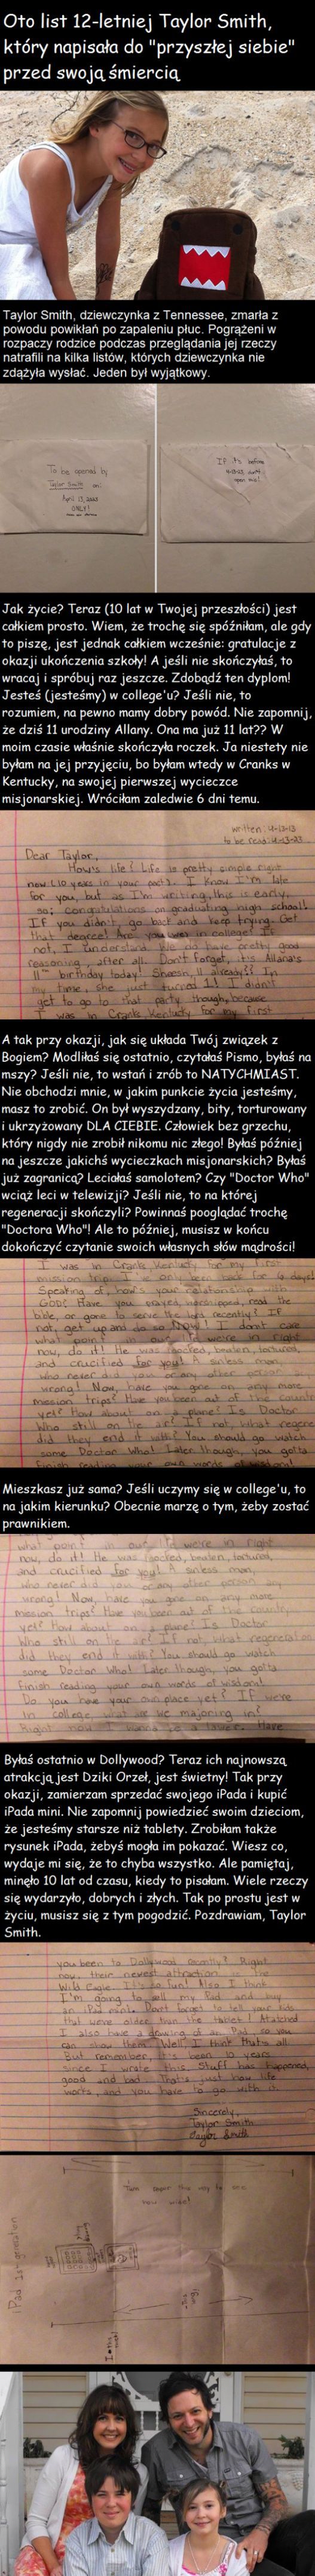 Oto list 12-letniej Taylor Smith,
który napisała do "przyszłej siebie"
przed swoją śmiercią
Taylor Smith, dziewczynka z Tennessee, zmarła z
powodu powikłań po zapaleniu płuc. Pogrążeni w
rozpaczy rodzice podczas przeglądania jej rzeczy
natrafili na kilka listów, których dziewczynka nie
zdążyła wysłać. Jeden był wyjątkowy.
To be opened by
Taylor Smith on:
April 13, 2023
ONLY!
If it's before
open me!
Jak życie? Teraz (10 lat w Twojej przeszłości) jest
całkiem prosto. Wiem, że trochę się spóźniłam, ale gdy
to piszę, jest jednak całkiem wcześnie: gratulacje z
okazji ukończenia szkoły! A jeśli nie skończyłaś, to
wracaj i spróbuj raz jeszcze. Zdobądź ten dyplom!
Jesteś (jesteśmy) w college'u? Jeśli nie, to
rozumiem, na pewno mamy dobry powód. Nie zapomnij,
że dziś 11 urodziny Allany. Ona ma już 11 lat?? W
moim czasie właśnie skończyła roczek. Ja niestety nie
byłam na jej przyjęciu, bo byłam wtedy w Cranks w
Kentucky, na swojej pierwszej wycieczce
misjonarskiej. Wróciłam zaledwie 6 dni temu.
written: 4-13-13
to be read: 4-13-23
Dear Taylor,
How's life? Life is pretty simple right
now (10 years in your past). I know I'm late
for you, but as I'm writing, this is early,
so; congratulations on graduating high school!
If you didn't go back and keep trying. Get
that degree! Are you (we) in college? If
not, I understand. We do have pretty good
reasoning, after all. Don't forget, it's Allana's
11th birthday today! Sheesh, 11 already?? In
my time, she just turned 1! I didn't
get to go to that party though, because
I was in Cranks, Kentucky for my first
A tak przy okazji, jak się układa Twój związek z
Bogiem? Modliłaś się ostatnio, czytałaś Pismo, byłaś na
mszy? Jeśli nie, to wstań i zrób to NATYCHMIAST.
Nie obchodzi mnie, w jakim punkcie życia jesteśmy,
masz to zrobić. On był wyszydzany, bity, torturowany
i ukrzyżowany DLA CIEBIE. Człowiek bez grzechu,
który nigdy nie zrobił nikomu nic złego! Byłaś później
na jeszcze jakichś wycieczkach misjonarskich? Byłaś
już zagranicą? Leciałaś samolotem? Czy "Doctor Who"
wciąż leci w telewizji? Jeśli nie, to na której
regeneracji skończyli? Powinnaś pooglądać trochę
"Doctora Who"! Ale to później, musisz w końcu
dokończyć czytanie swoich własnych słów mądrości!
I was in Cranks, Kentucky for my first
mission trip. I've only been back for 6 days!
Speaking of, how's your relationship with
GOD? Have you prayed, worshipped, read the
bible, or gone to serve the lord recently? If
not, get up and do so NOW! I don't care
what point in our life we're in right
now, do it! He was mocked, beaten, tortured,
and crucified for you! A sinless man,
who never did you or any other person
wrong! Now, have you gone on any more
mission trips? Have you been out of the country
yet? How about on a plane? Is Doctor
Who still on the air? If not, what regene
did they end it with? You should go watch
some Doctor Who! Later though, you gotta
finish reading your own words of wisdom!
Mieszkasz już sama? Jeśli uczymy się w college'u, to
na jakim kierunku? Obecnie marzę o tym, żeby zostać
prawnikiem.
what point in our life we're in right
now, do it! He was mocked, beaten, tortured,
and crucified for you! A sinless man,
who never did you or any other person
wrong! Now, have you gone on any more
mission trips? Have you been out of the country
yet? How about on a plane? Is Doctor
Who still on the air? If not, what regeneration
did they end it with? You should go watch
some Doctor Who! Later though, you gotta
finish reading your own words of wisdom!
Do you have your own place yet? If we're
in college, what are we majoring in?
Right now, I wanna be a lawyer. Have
Byłaś ostatnio w Dollywood? Teraz ich najnowszą
atrakcją jest Dziki Orzeł, jest świetny! Tak przy
okazji, zamierzam sprzedać swojego iPada i kupić
iPada mini. Nie zapomnij powiedzieć swoim dzieciom,
że jesteśmy starsze niż tablety. Zrobiłam także
rysunek iPada, żebyś mogła im pokazać. Wiesz co,
wydaje mi się, że to chyba wszystko. Ale pamiętaj,
minęło 10 lat od czasu, kiedy to pisałam. Wiele rzeczy
się wydarzyło, dobrych i złych. Tak po prostu jest w
życiu, musisz się z tym pogodzić. Pozdrawiam, Taylor
Smith.
you been to Dollywood recently? Right
now, their newest attraction is the
Wild Eagle. It's so fun! Also I think
I'm going to sell my iPad and buy
an iPad mini. Don't forget to tell your kids
that we're older than the tablet! Attatched
I also have a drawing of an iPad so you
can show them. Well, I think that's all.
But remember, it's been 10 years
since I wrote this. Stuff has happened,
good and bad. That's just how life
works, and you have to go with it.
Sincerely,
Taylor Smith
Taylor Smith
iPad 1st generation